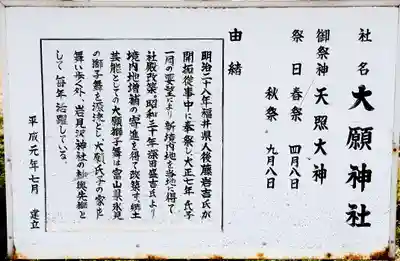 社名 大願神社
御祭神 天照大神
祭日 春祭 四月八日
秋祭 九月八日
由緒
明治二十八年福井県人後藤岩吉氏が
開拓従事中に奉祭し大正七年氏子
一同の要望により新境内地を当地に得て
社殿改築、昭和三十年深田盛吉氏より
境内地増補の寄進を得て改築す、郷土
芸能としての大願獅子舞は富山県氷見
の獅子舞を源流とし大願氏子の家毎
舞い歩く外、岩見沢神社の神輿先駆と
して毎年活躍している。
平成元年七月 建立